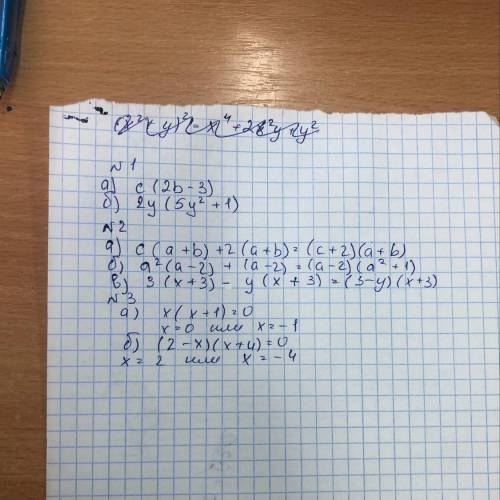 №1
а) c(2b-3)
б) 2y(5y²+1)
№2
а) c(a+b)+2(a+b)=(c+2)(a+b)
б) a²(a-2)+(a-2)=(a-2)(a²+1)
в) 3(x+3)-y(x+3)=(3-y)(x+3)
№3
а) x(x+1)=0
x=0 или x=-1
б) (2-x)(x+4)=0
x=2 или x=-4